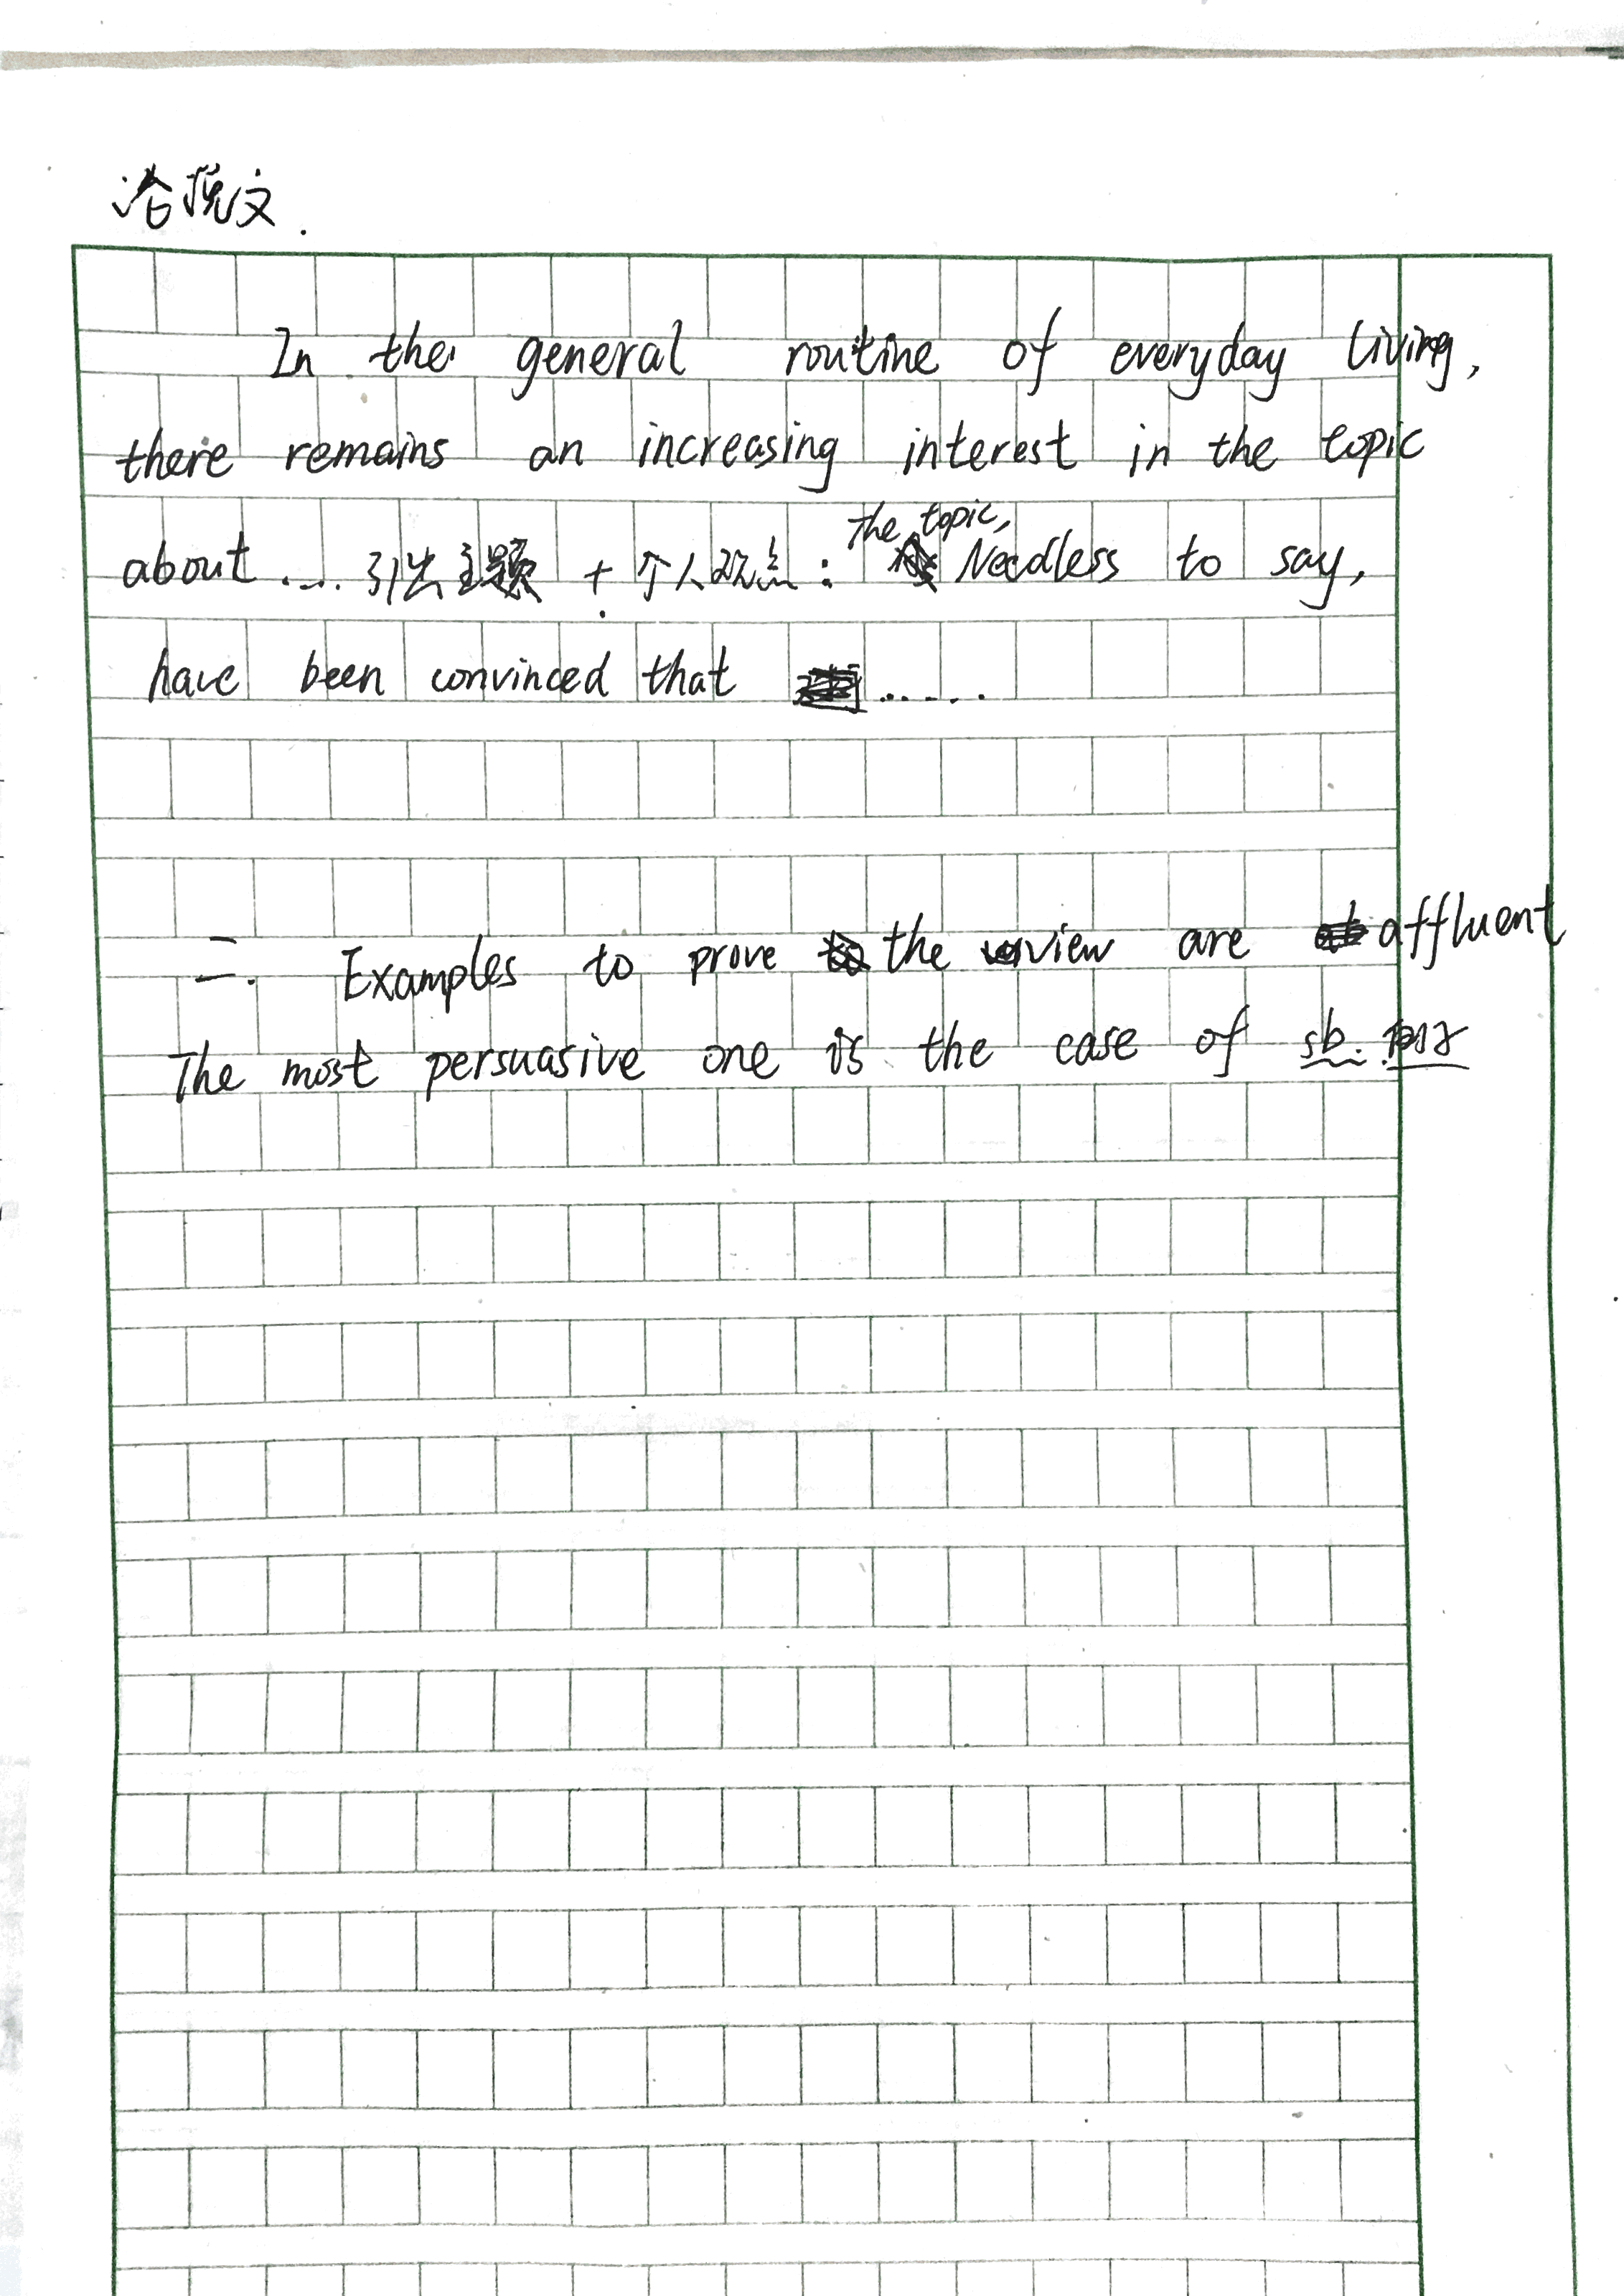 In the general routine of everyday living,
there remains an increasing interest in the topic
about .... 引出主题 + 个人观点: the topic, Needless to say,
have been convinced that ......
二. Examples to prove the view are affluent
The most persuasive one is the case of sb.